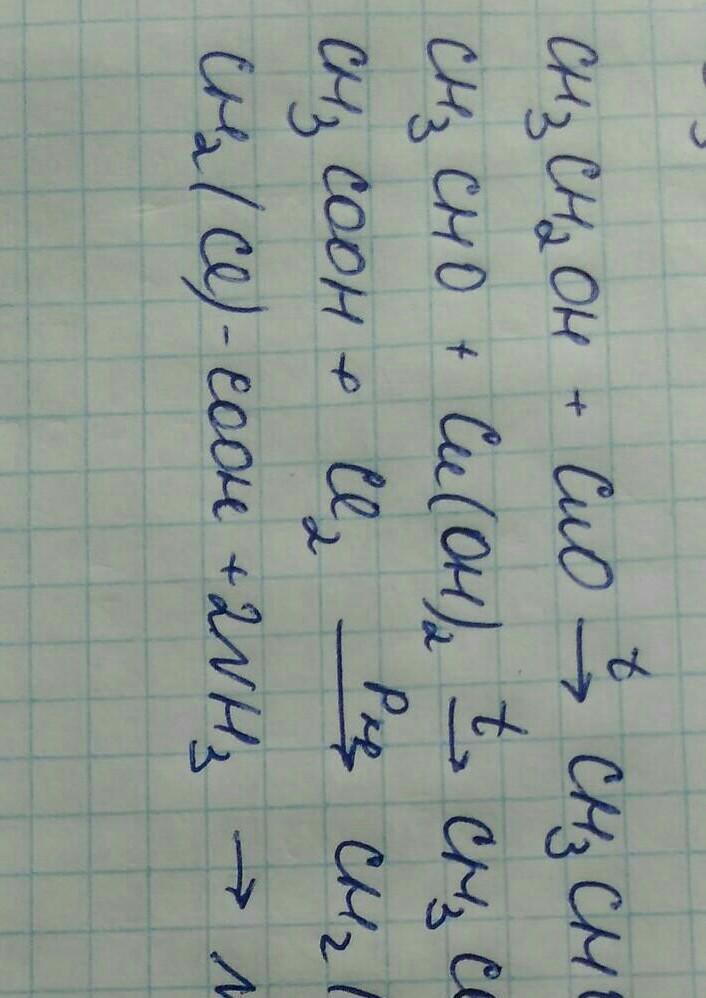 CH₃CH₂OH + CuO →ᵗ CH₃CH
CH₃CHO + Cu(OH)₂ →ᵗ CH₃C
CH₃COOH + Cl₂ → CH₂(
CH₂(Cl)-COOH + 2NH₃ →